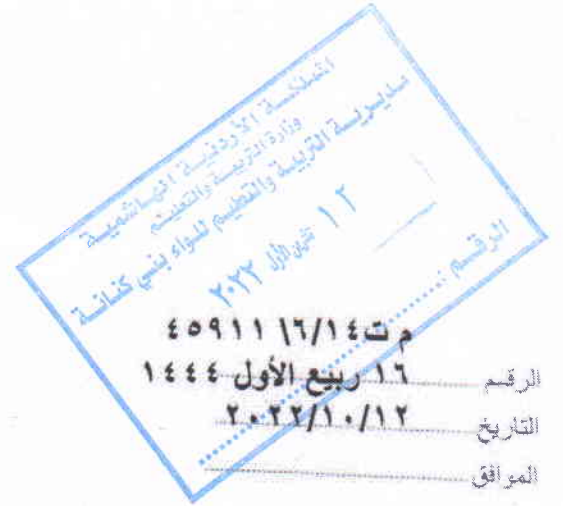 المملكة الأردنية الهاشمية
وزارة التربية والتعليم
مديرية التربية والتعليم للواء بني كنانة
١٢ تشرين الأول ٢٠٢٢
الرقم :
الرقم م ت٦/١٤/ ٤٥٩١١
١٦ ربيع الأول ١٤٤٤
التاريخ ٢٠٢٢/١٠/١٢
المرافق